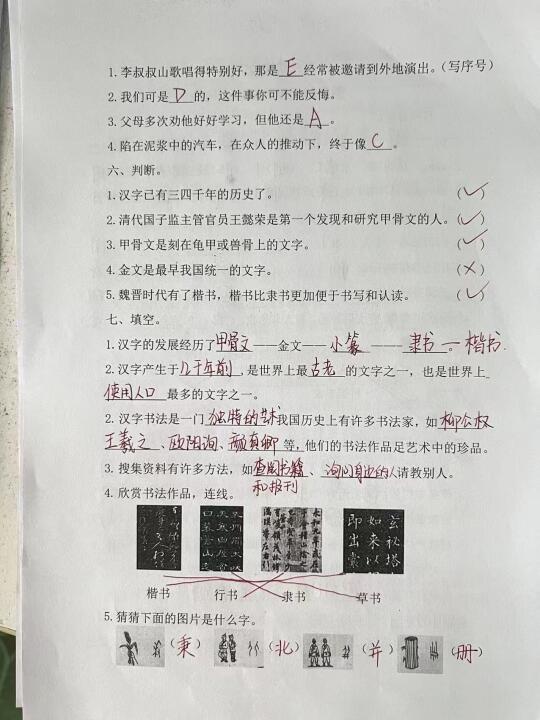 1.李叔叔山歌唱得特别好，那是 E 经常被邀请到外地演出。(写序号)
2.我们可是 D 的，这件事你可不能反悔。
3.父母多次劝他好好学习，但他还是 A 。
4.陷在泥浆中的汽车，在众人的推动下，终于像 C 。
六、判断。
1.汉字已有三四千年的历史了。 (✓)
2.清代国子监主管官员王懿荣是第一个发现和研究甲骨文的人。(✓)
3.甲骨文是刻在龟甲或兽骨上的文字。 (✓)
4.金文是最早我国统一的文字。 (×)
5.魏晋时代有了楷书，楷书比隶书更加便于书写和认读。 (✓)
七、填空。
1.汉字的发展经历了 甲骨文 ——金文—— 小篆 —— 隶书 — 楷书.
2.汉字产生于 几千年前 ,是世界上最 古老 的文字之一，也是世界上
使用人口 最多的文字之一。
2.汉字书法是一门 独特的艺术 我国历史上有许多书法家，如 柳公权
王羲之、欧阳询、颜真卿 等, 他们的书法作品足艺术中的珍品。
3.搜集资料有许多方法，如 查图书籍 、 询问身边的人 请教别人。
和报刊
4.欣赏书法作品，连线。
玄秘塔
如来以
即出棠
楷书 行书 隶书 草书
5.猜猜下面的图片是什么字。
(秉) (北) (并) (册)